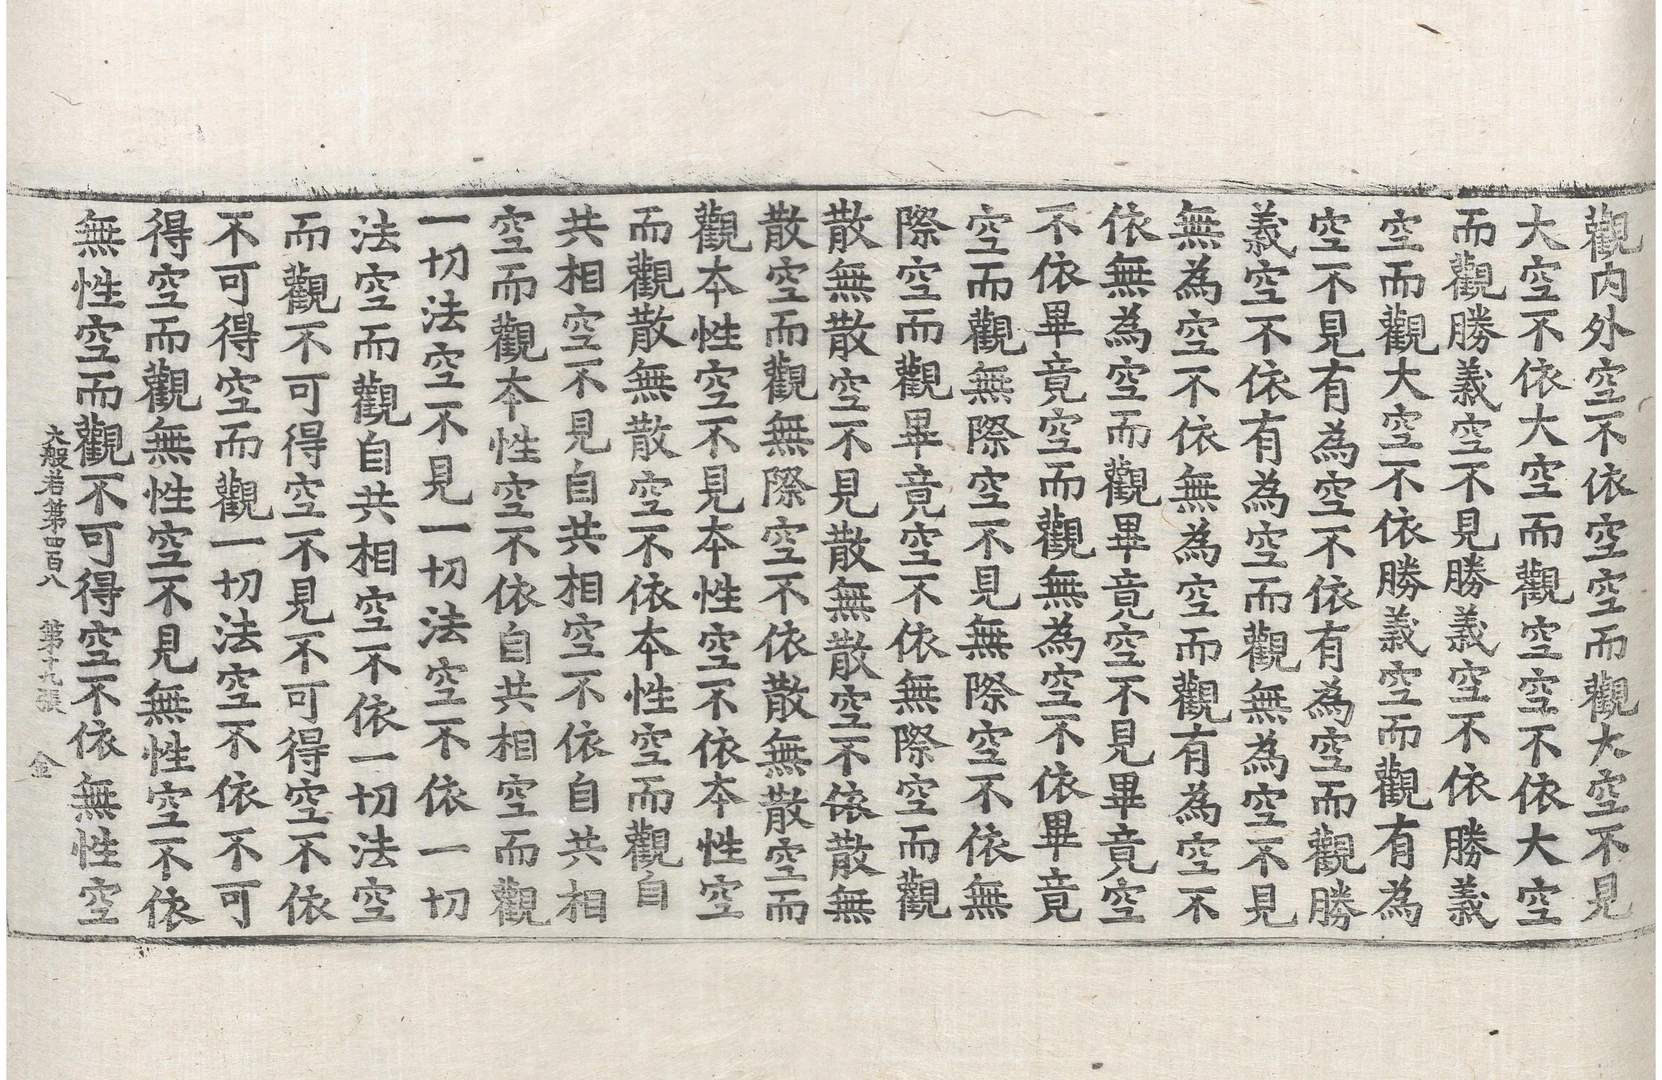 觀内外空不依空空而觀大空不見
大空不依大空而觀空空不依大空
而觀勝義空不見勝義空不依勝義
空而觀大空不依勝義空而觀有為
空不見有為空不依有為空而觀勝
義空不依有為空而觀無為空不見
無為空不依無為空而觀有為空不
依無為空而觀畢竟空不見畢竟空
不依畢竟空而觀無為空不依畢竟
空而觀無際空不見無際空不依無
際空而觀畢竟空不依無際空而觀
散無散空不見散無散空不依散無
散空而觀無際空不依散無散空而
觀本性空不見本性空不依本性空
而觀散無散空不依本性空而觀自
共相空不見自共相空不依自共相
空而觀本性空不依自共相空而觀
一切法空不見一切法空不依一切
法空而觀自共相空不依一切法空
而觀不可得空不見不可得空不依
不可得空而觀一切法空不依不可
得空而觀無性空不見無性空不依
無性空而觀不可得空不依無性空
大般若第四百八 第十九張 金